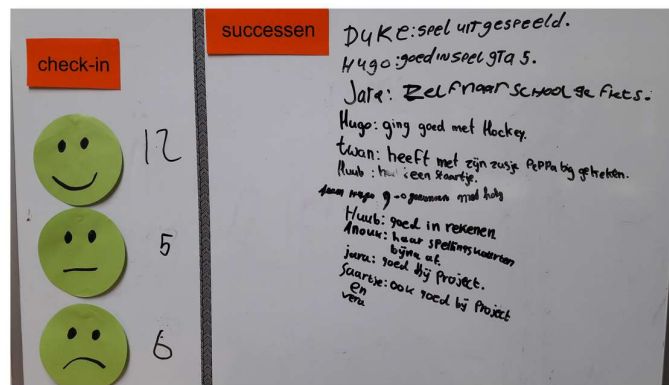 check-in
12
5
6
successen
Dyke: speel uitgespeeld.
Hugo: goed in speel gta 5.
Jara: zelf naar school ge fiets.
Hugo: ging goed met Hockey.
twan: heeft met zijn zusje Peppa big gekeken.
Huub: een staartje.
9-0 gewonnen met
Huub: goed in rekenen
Anouk: haar spellingskaarten
bijna af.
jara: goed bij Project.
Saartje: ook goed bij Project
en
vera